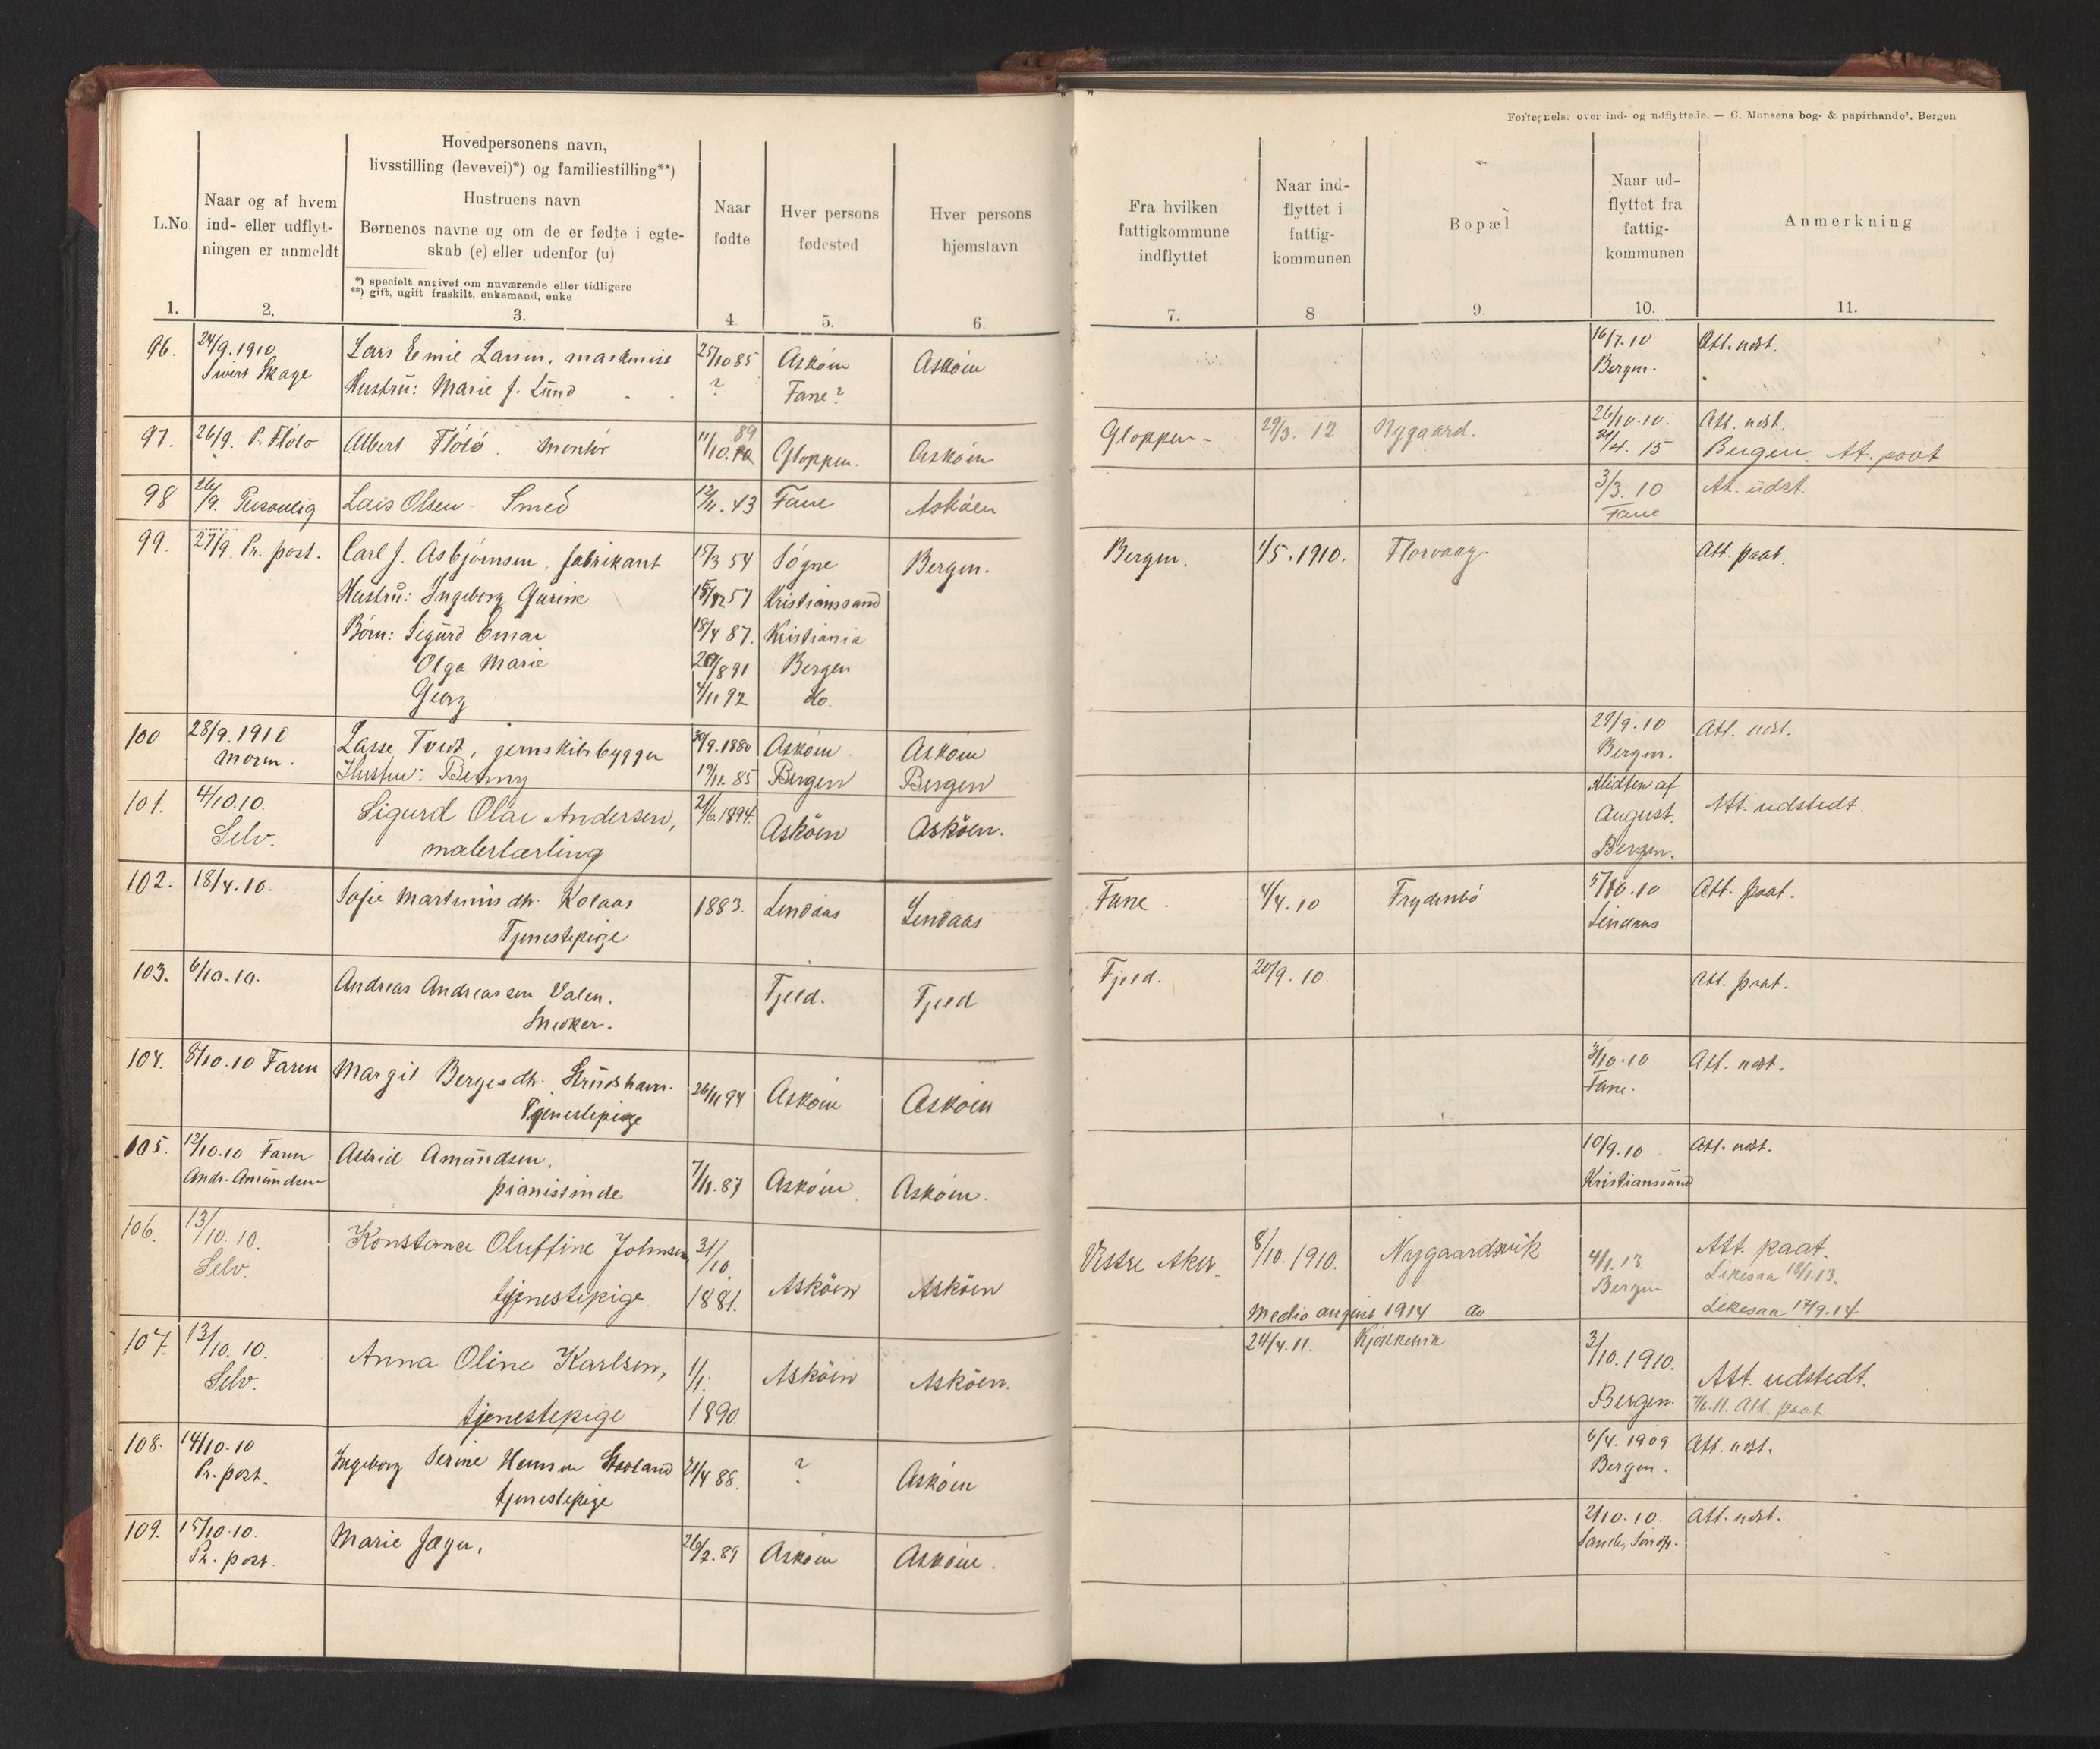 Fortegnelse over ind- og udflyttede. — C. Monsens bog- & papirhandel, Bergen
L.No.
Naar og af hvem
ind- eller udflyt-
ningen er anmeldt
Hovedpersonens navn,
livsstilling (levevei)*) og familiestilling**)
Hustruens navn
Børnenes navne og om de er fødte i egte-
skab (e) eller udenfor (u)
*) specielt angivet om nuværende eller tidligere
**) gift, ugift fraskilt, enkemand, enke
Naar
fødte
Hver persons
fødested
Hver persons
hjemstavn
Fra hvilken
fattigkommune
indflyttet
Naar ind-
flyttet i
fattig-
kommunen
Bopæl
Naar ud-
flyttet fra
fattig-
kommunen
Anmerkning
1. 2. 3. 4 5. 6. 7. 8 9. 10. 11.
96. 24/9.1910 Lars Emil Larsen, maskinist 25/10 85 Askøen Askøen 16/7.10 Att. udst.
Sivert Skage Hustru: Marie J. Lund ? Fane? Bergen.
97. 26/9. P. Flölo Albert Flölo. Montör 11/10. 89 Gloppen. Askøen Gloppen 29/3. 12 Nygaard. 26/10.10. Att. udst.
21/4. 15 Bergen At. paat
98 26/9. Personlig Lars Olsen Smed 12/11. 43 Fane Askøen 3/3. 10 At. udst.
Fane
99. 27/9 Pr. post. Carl J. Asbjørnsen, fabrikant 15/3 54 Søgne Bergen. Bergen. 1/5.1910. Florvaag. Att. paat.
Hustru: Ingeborg Gurine 15/12 57 Kristianssand
Børn: Sigurd Einar 18/4 87. Kristiania
Olga Marie 20/8 91 Bergen
Georg 4/11 92 do.
100 28/9.1910 Lasse Tveit, jernskibsbygger 30/9.1880 Askøen Askøen 29/9.10 Att. udst.
Moren. Hustru: Benny 19/11. 85 Bergen Bergen Bergen.
101. 4/10.10. Sigurd Olai Andersen, 21/6.1894. Askøen Askøen. Midten af Att. udstedt.
Selv. malerlærling August.
Bergen.
102. 18/4.10. Sofie Martinusdtr. Kolaas 1883. Lindaas Lindaas Fane. 4/4.10 Frydenbö 5/10.10 Att. paat.
Tjenestepige Lindaas
103. 6/10.10. Andreas Andreassen Valen. Fjeld. Fjeld Fjeld. 20/9.10 Att. paat.
Snedker.
104. 8/10.10 Faren Margit Bergesdtr. Strudshavn. 26/11 94 Askøen Askøen 3/10.10 Att. udst.
Tjenestepige Fane.
105. 12/10.10 Faren Astrid Amundsen, 7/11.87 Askøen Askøen. 10/9.10 Att. udst.
Andr. Amundsen pianistinde Kristianssund
106. 13/10.10. Konstance Oluffine Johnsen 31/10 Askøen Askøen Vestre Aker. 8/10.1910. Nygaardsvik 4/1.13 Att. paat.
Selv. tjenestepige. 1881. Bergen Likesaa 18/1.13.
Medio august 1914 do Likesaa 17/9.14
107. 13/10.10. Anna Oline Karlsen, 1/1. Askøen Askøen. 24/4.11. Kjøkkelvik 3/10.1910. Att. udstedt.
Selv. tjenestepige 1890. Bergen. Att. paat
108. 14/10.10 Ingeborg Serine Hansen 21/4 88. ? Askøen 6/4.1909 Att. udst.
Pr. post. tjenestepige Bergen.
109. 15/10.10. Marie Jæger, 26/2.89 Askøen Askøen. 2/10.10. Att. udst.
Pr. post.